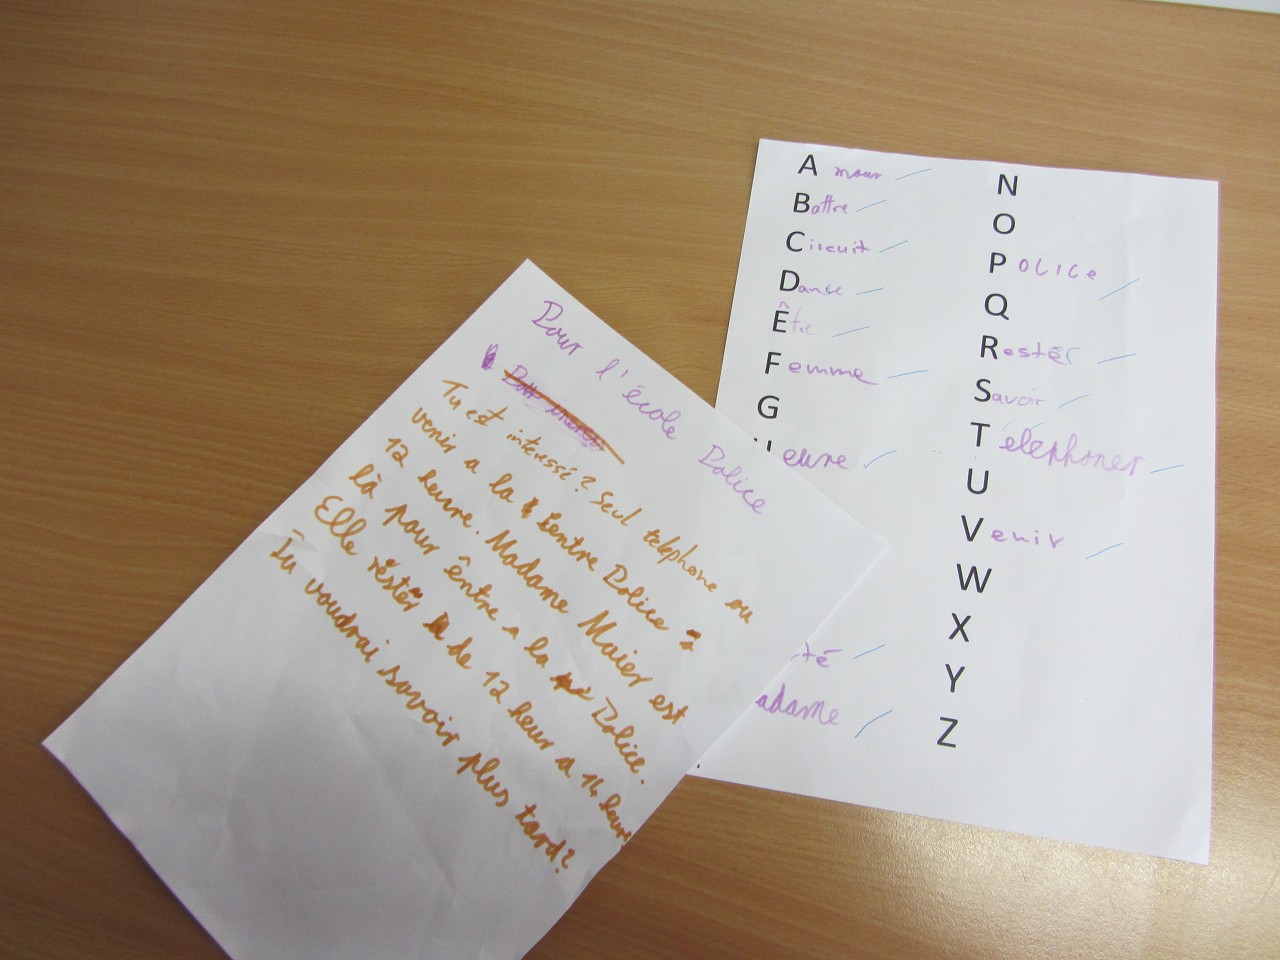 Pour l'école Police
Tu est interessé? Seul telephone ou
venir a la Centre Police à
12 heure. Madame Maier est
là pour êntre a la Police.
Elle réster de 12 heur a 14 heure
Tu voudrai savoir plus tard?
Amour
Battre
Circuit
Danse
Être
Femme
G
Heure
té
adame
N
O
POLICe
Q
Rester
Savoir
Téléphoner
U
Venir
W
X
Y
Z